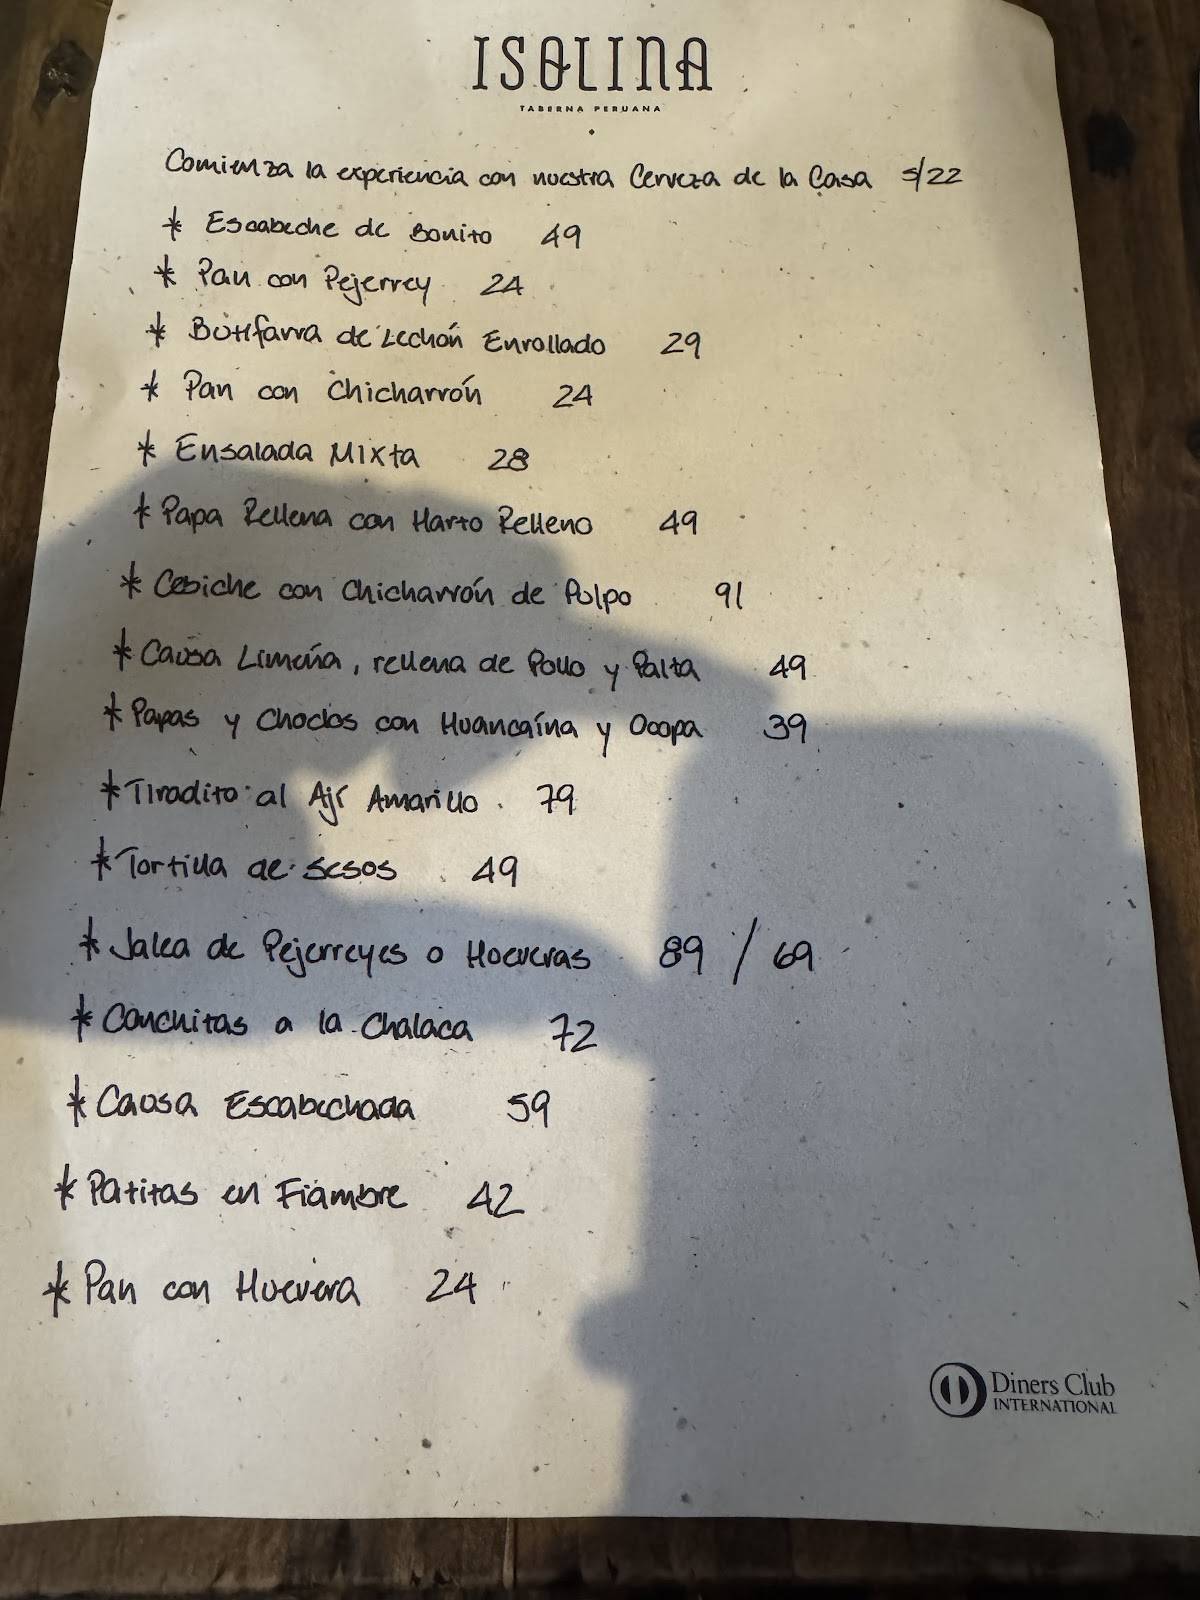 ISOLINA
TABERNA PERUANA
Comienza la experiencia con nuestra Cerveza de la Casa s/22
* Escabeche de Bonito 49
* Pan con Pejerrey 24
* Butifarra de Lechón Enrollado 29
* Pan con Chicharrón 24
* Ensalada Mixta 28
* Papa Rellena con Harto Relleno 49
* Cebiche con Chicharrón de Pulpo 91
* Causa Limeña, rellena de Pollo y Palta 49
* Papas y Choclos con Huancaína y Ocopa 39
* Tiradito al Ají Amarillo 79
* Tortilla de Sesos 49
* Jalea de Pejerreyes o Hueveras 89 / 69
* Conchitas a la Chalaca 72
* Causa Escabechada 59
* Patitas en Fiambre 42
* Pan con Huevera 24
Diners Club
INTERNATIONAL